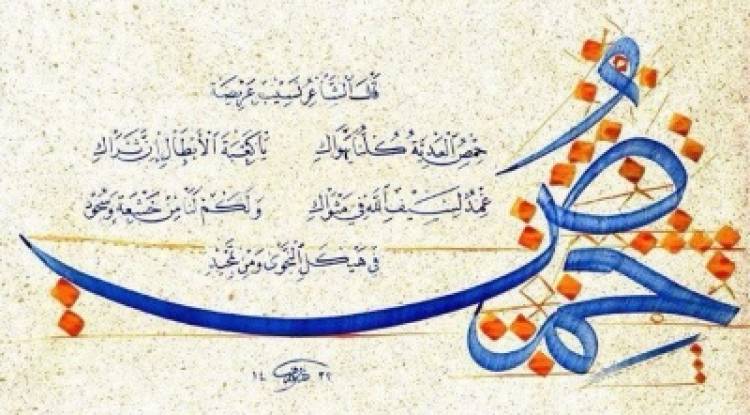 قال الشاعر نسيب عريضة
حمص العدية كلنا نهواك يا كعبة الأبطال إن ثراك
غمد لسيف الله في مثواك ولكم لنا من خشعة وسجود
في هيكل النجوى ومن تمجيد
حمص